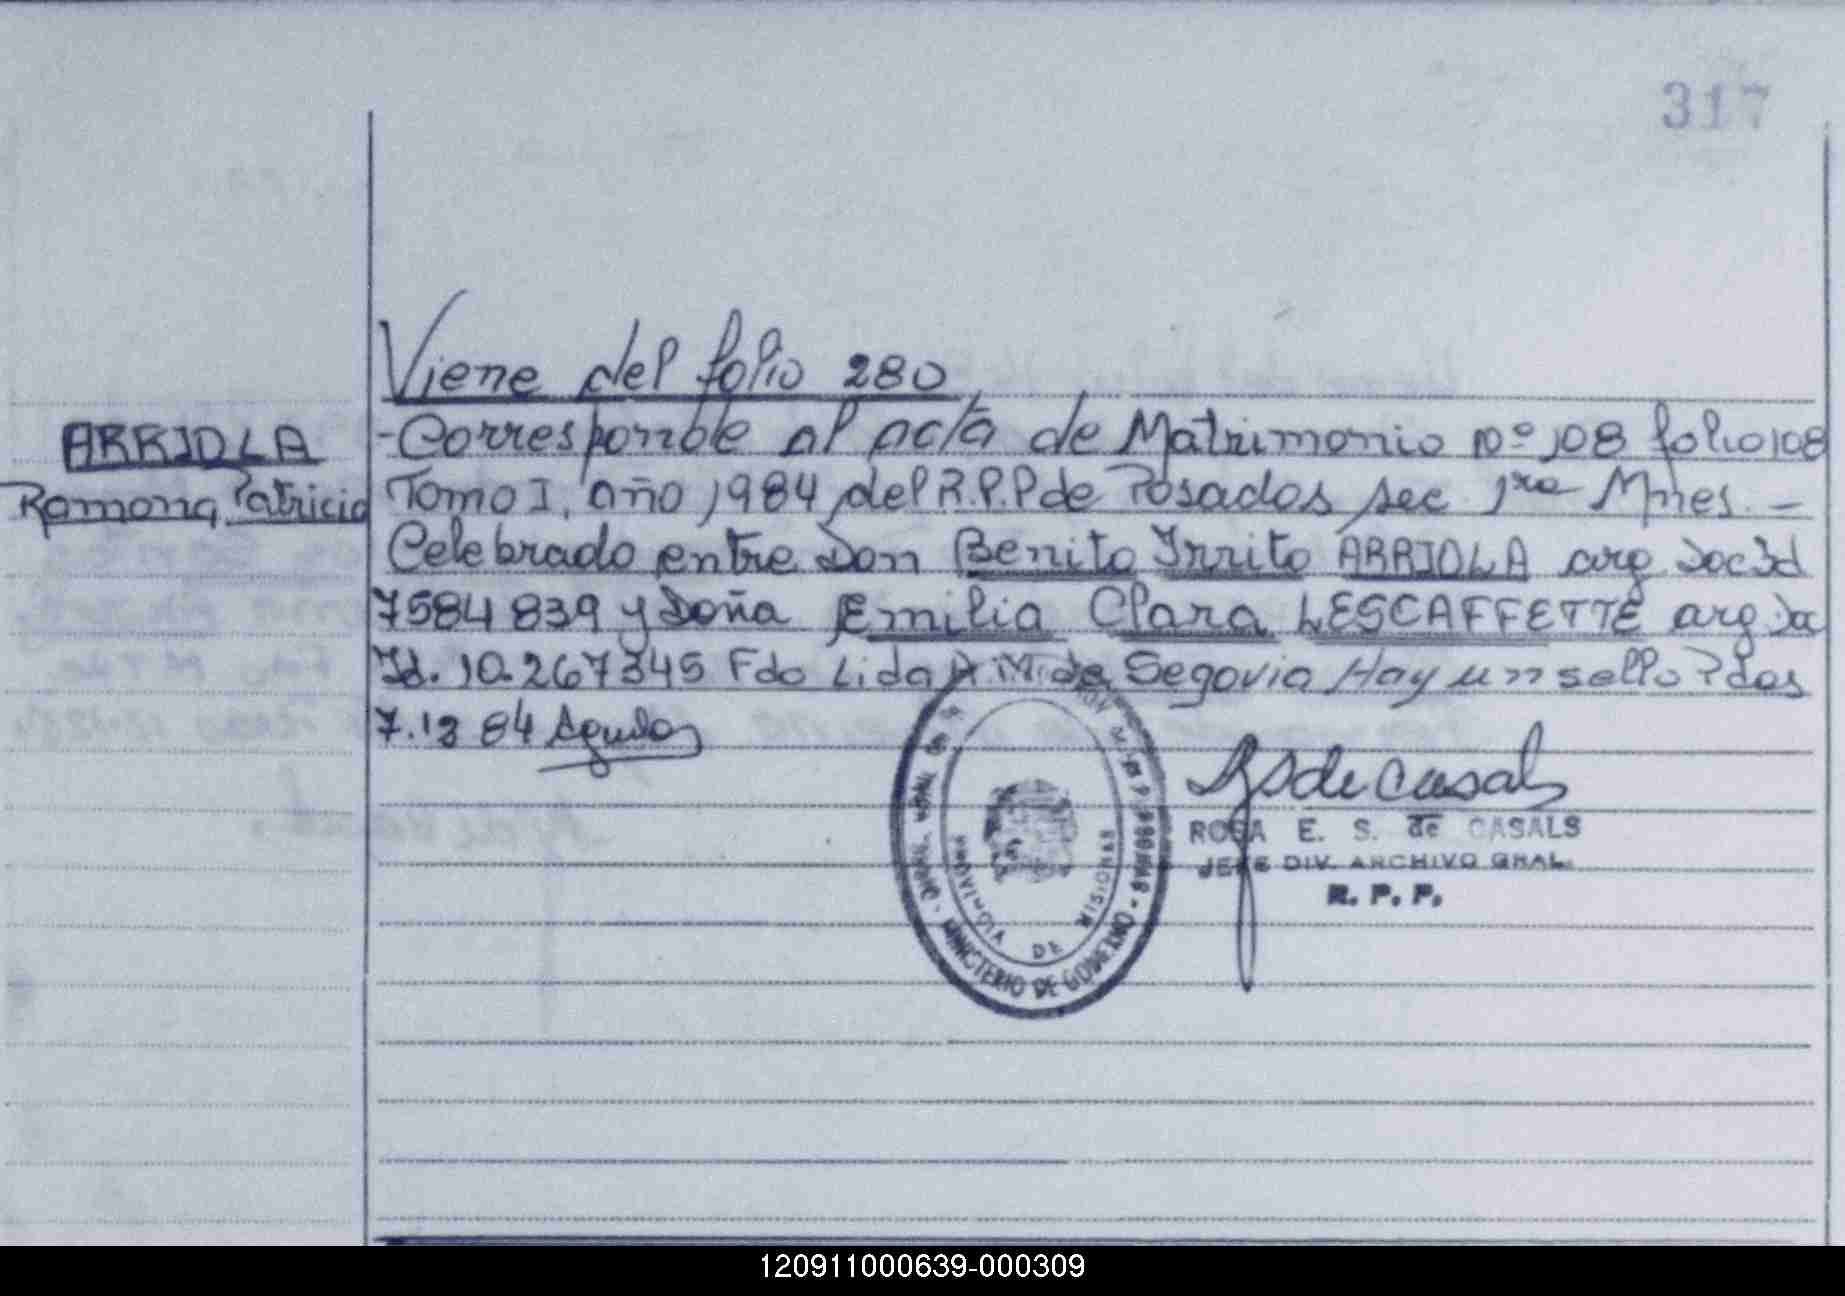 317
Viene del folio 280
ARRIOLA
Ramona Patricia
-Corresponde al acta de Matrimonio nº 108 folio 108
Tomo I, año 1984 del R.P.P de Posadas sec 1ra Mnes. -
Celebrado entre Don Benito Irrito ARRIOLA arg Doc Id
7584 839 y Doña Emilia Clara LESCAFFETTE arg Doc
Id. 10.267345 Fdo Lida A M. de Segovia Hay un sello Pdas
7.12 84
MINISTERIO DE GOBIERNO
PROVINCIA DE MISIONES
ROSA E. S. de CASALS
JEFE DIV. ARCHIVO GRAL.
R. P. P.
120911000639-000309